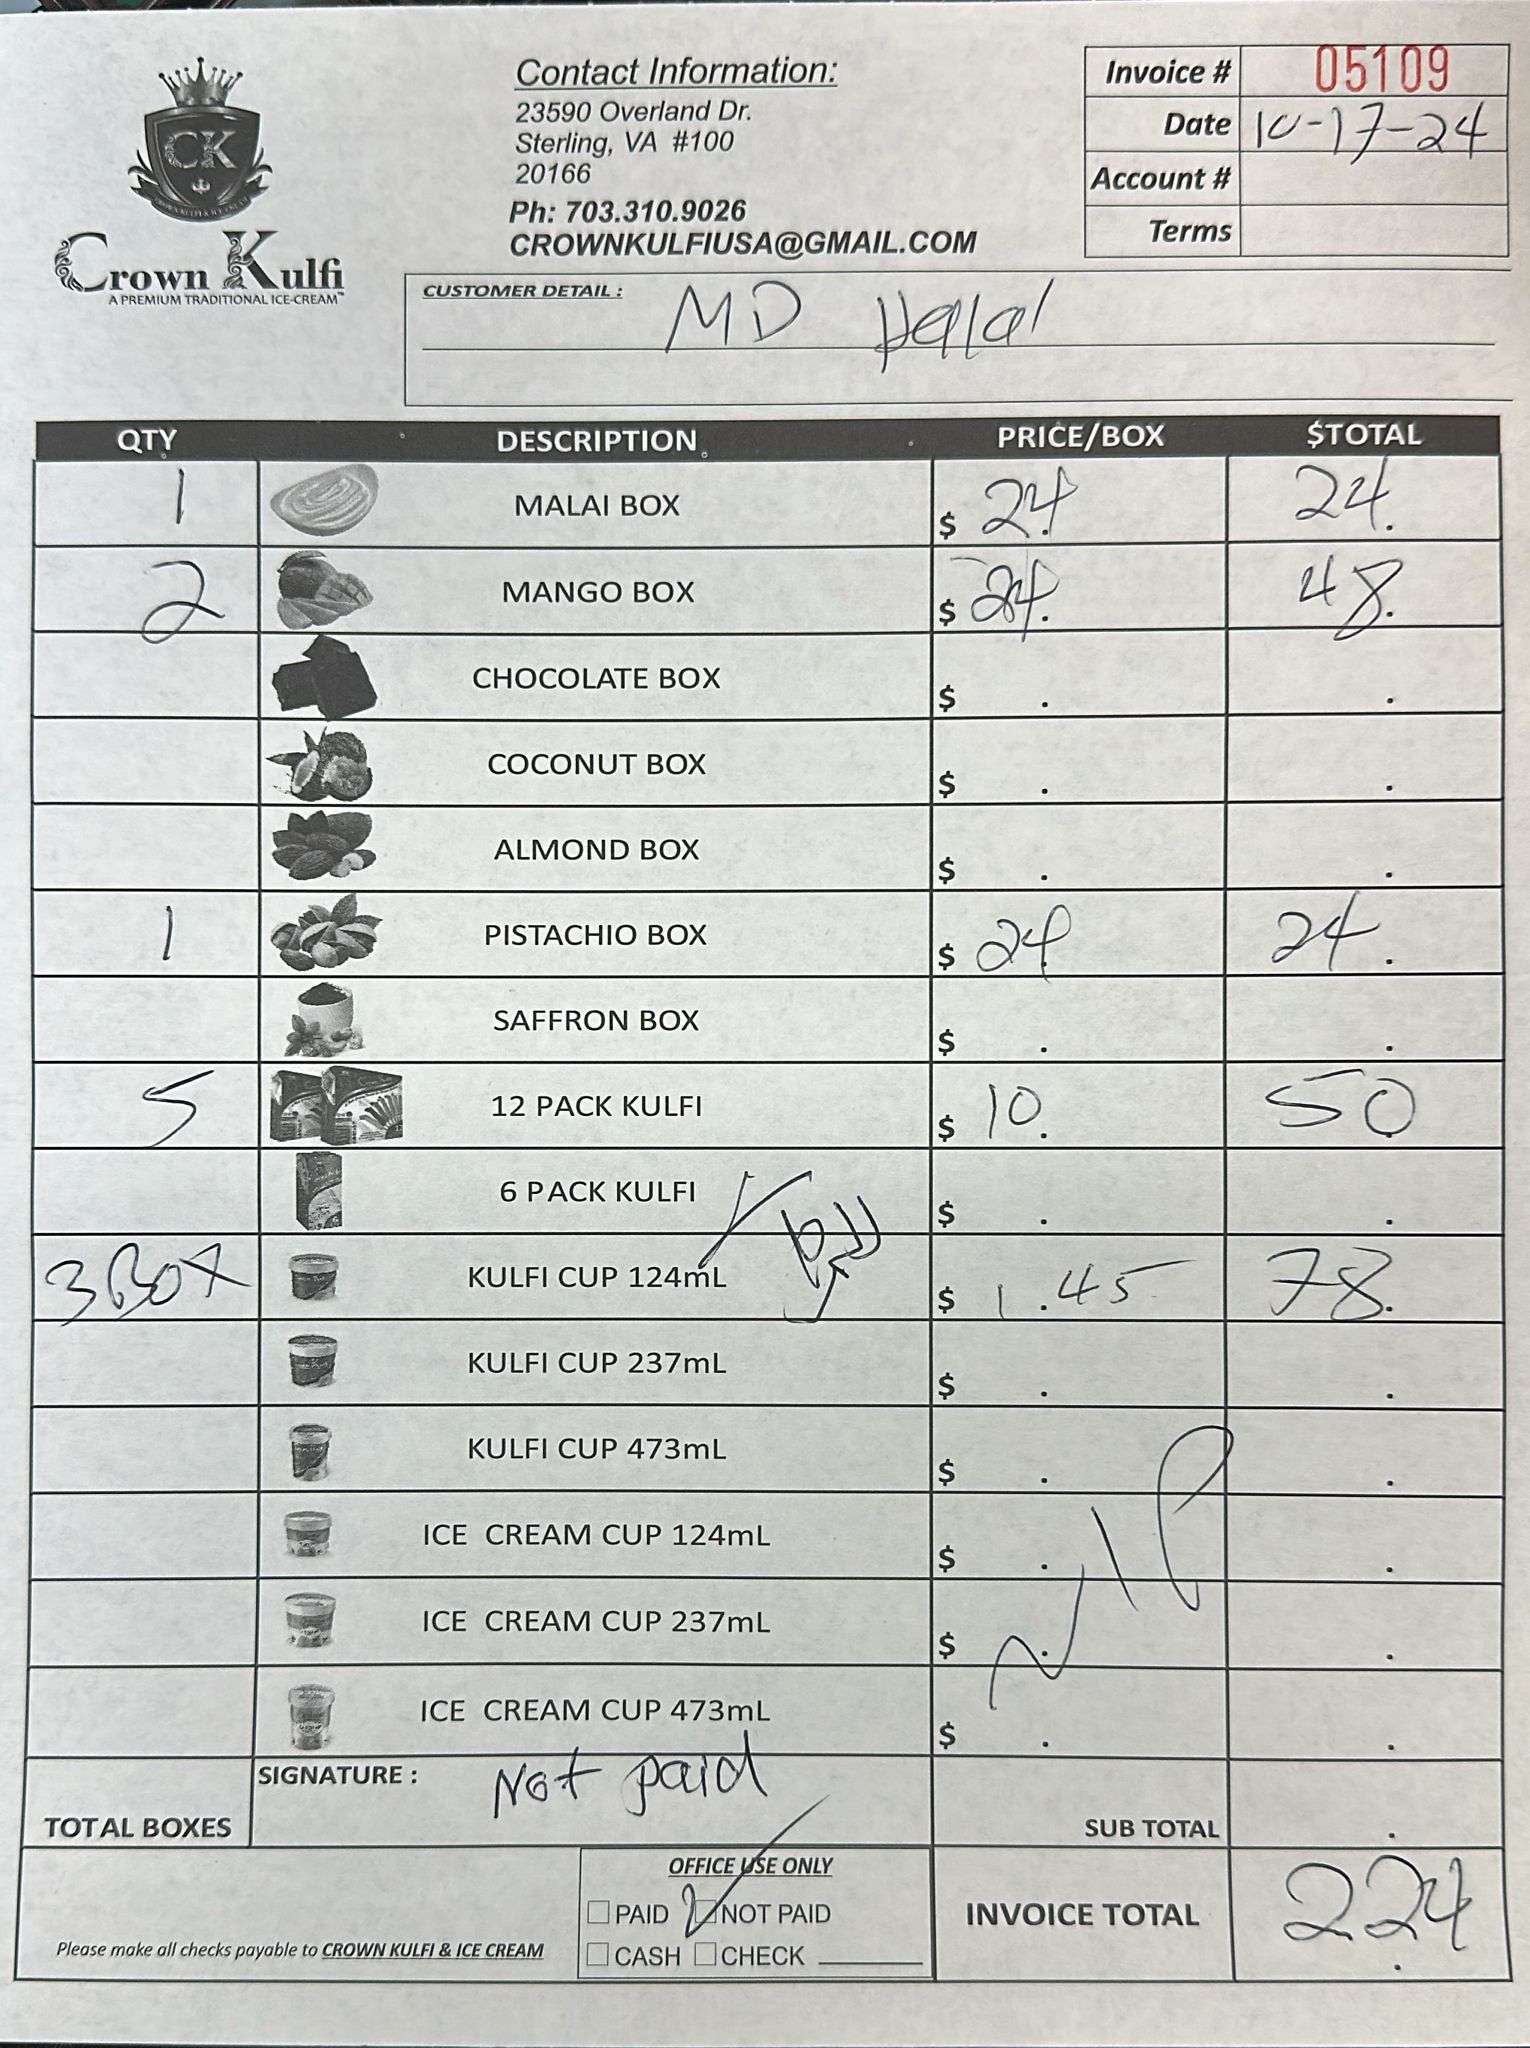 CK
Crown Kulfi
A PREMIUM TRADITIONAL ICE-CREAM™
Contact Information:
23590 Overland Dr.
Sterling, VA #100
20166
Ph: 703.310.9026
CROWNKULFIUSA@GMAIL.COM
Invoice # 05109
Date 10-17-24
Account #
Terms
CUSTOMER DETAIL : MD Halal
QTY DESCRIPTION PRICE/BOX $TOTAL
1 MALAI BOX $ 24. 24.
2 MANGO BOX $ 24. 48.
CHOCOLATE BOX $ . .
COCONUT BOX $ . .
ALMOND BOX $ . .
1 PISTACHIO BOX $ 24. 24.
SAFFRON BOX $ . .
5 12 PACK KULFI $ 10. 50
6 PACK KULFI $ . .
3 BOX KULFI CUP 124mL $ 1.45 78.
KULFI CUP 237mL $ . .
KULFI CUP 473mL $ . .
ICE CREAM CUP 124mL $ . .
ICE CREAM CUP 237mL $ . .
ICE CREAM CUP 473mL $ . .
SIGNATURE : Not paid
TOTAL BOXES SUB TOTAL .
OFFICE USE ONLY
PAID NOT PAID
CASH CHECK
Please make all checks payable to CROWN KULFI & ICE CREAM
INVOICE TOTAL 224.